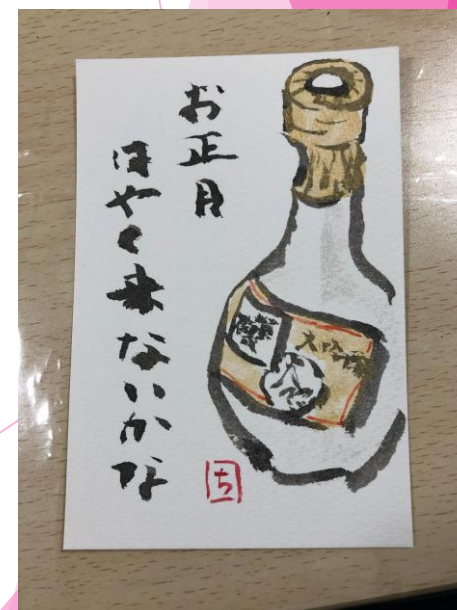 お正月
はやく来ないかな
大吟醸
ち